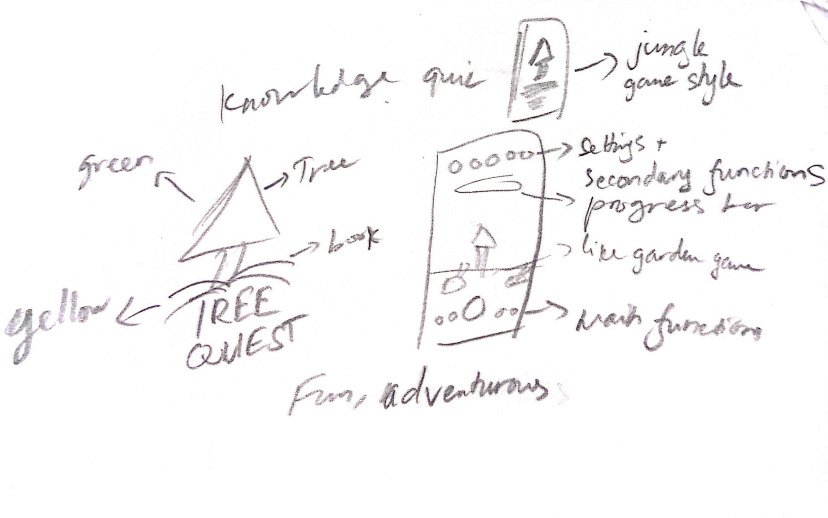 knowledge quiz
jungle
game style
green
Tree
book
yellow
TREE
QUEST
settings +
secondary functions
progress bar
like garden game
Main functions
Fun, adventurous